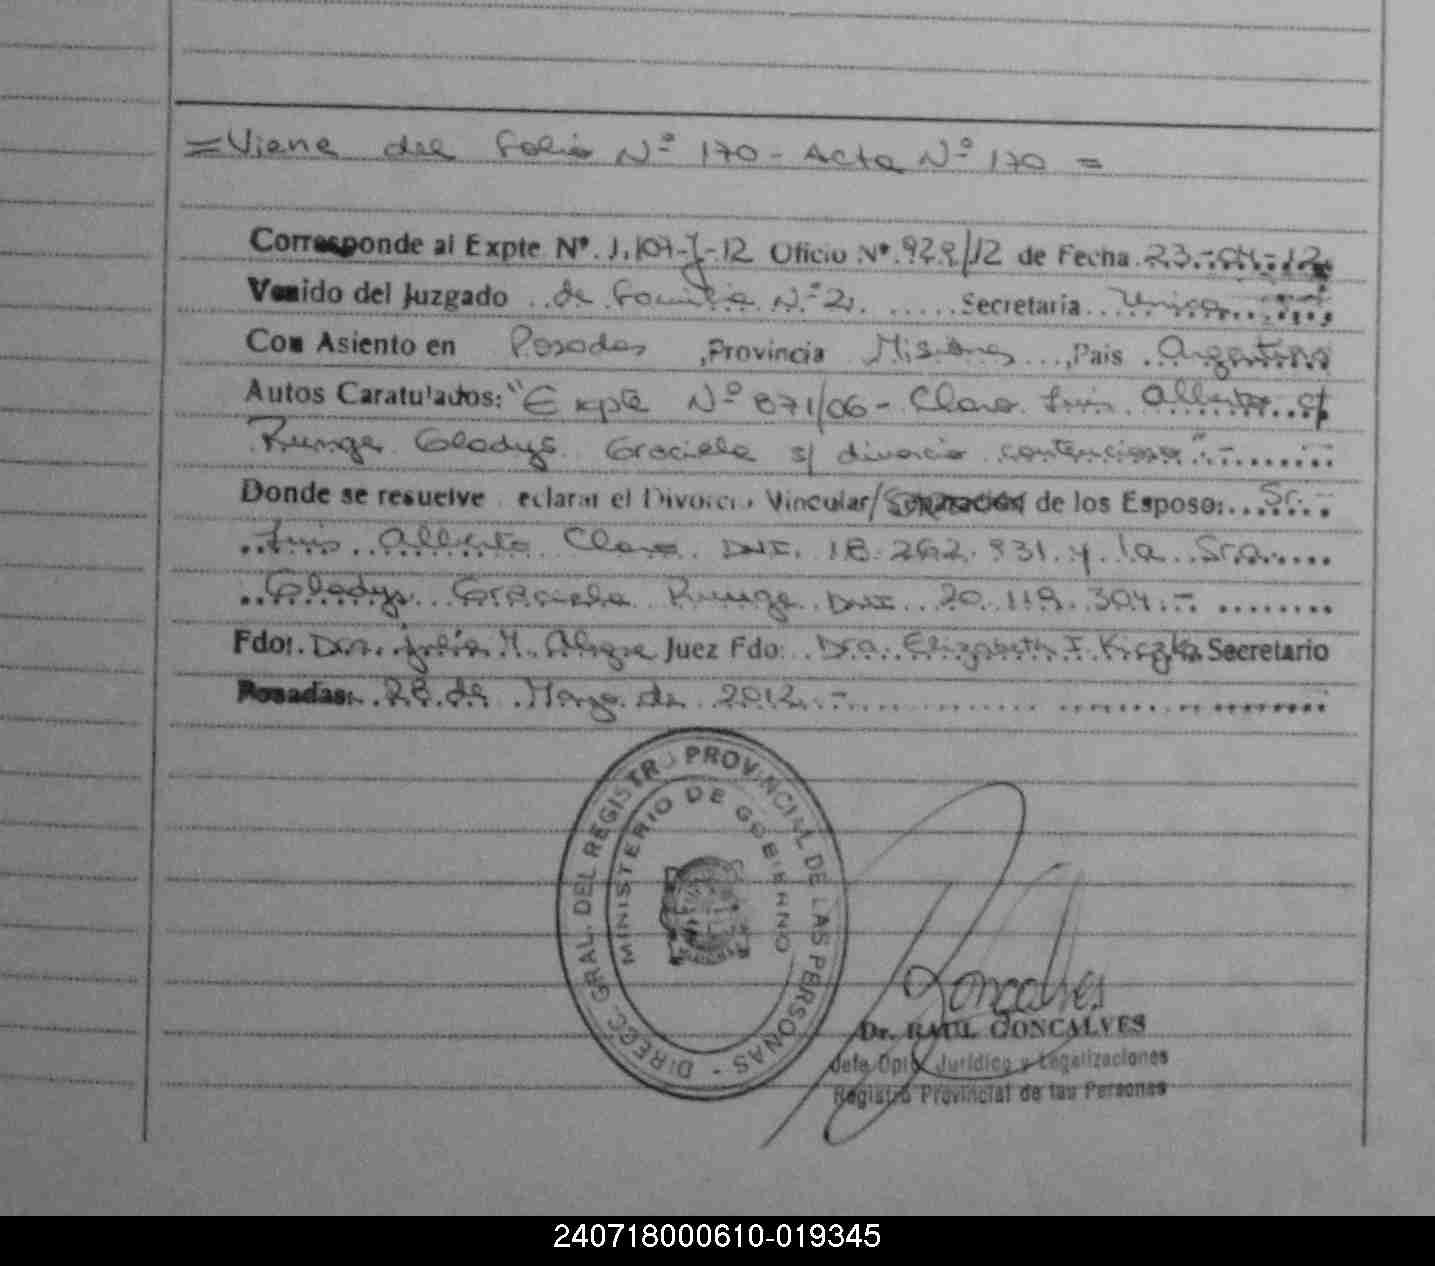 =Viene del Folio Nº 170 - Acta Nº 170 =
Corresponde al Expte Nº. 1.107-J-12 Oficio Nº. 929/12 de Fecha. 23.-04-.12.
Venido del Juzgado de Familia Nº 2. Secretaria Unica
Con Asiento en Posadas, Provincia Misiones, Pais Argentina
Autos Caratulados: "Expte Nº 871/06 - Claro Luis Alberto c/
Runge Gladys Graciela s/ divorcio contencioso".-
Donde se resuelve eclarar el Divorcio Vincular/Separación de los Esposos: Sr.-
Luis Alberto Claro DNI. 18.262.931 y la Sra.
Gladys Graciela Runge DNI. 20.119.304.-
Fdo: Dra. Julia M. Alegre Juez Fdo: Dra. Elizabeth I. Kiczka Secretario
Posadas: 28 de Mayo de 2012.-
DIRECC. GRAL. DEL REGISTRO PROVINCIAL DE LAS PERSONAS -
MINISTERIO DE GOBIERNO
Goncalves
Dr. RAUL GONCALVES
Jefe Dpto. Jurídico y Legalizaciones
Registro Provincial de las Personas
240718000610-019345